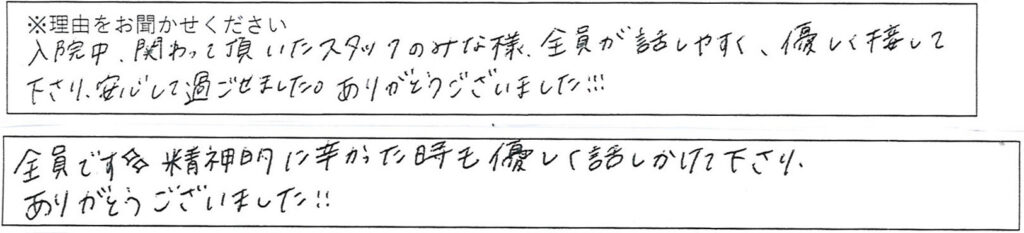 ※理由をお聞かせください
入院中、関わって頂いたスタッフのみな様、全員が話しやすく、優しく接して
下さり、安心して過ごせました。ありがとうございました!!!
全員です☆ 精神的に辛かった時も優しく話しかけて下さり、
ありがとうございました!!